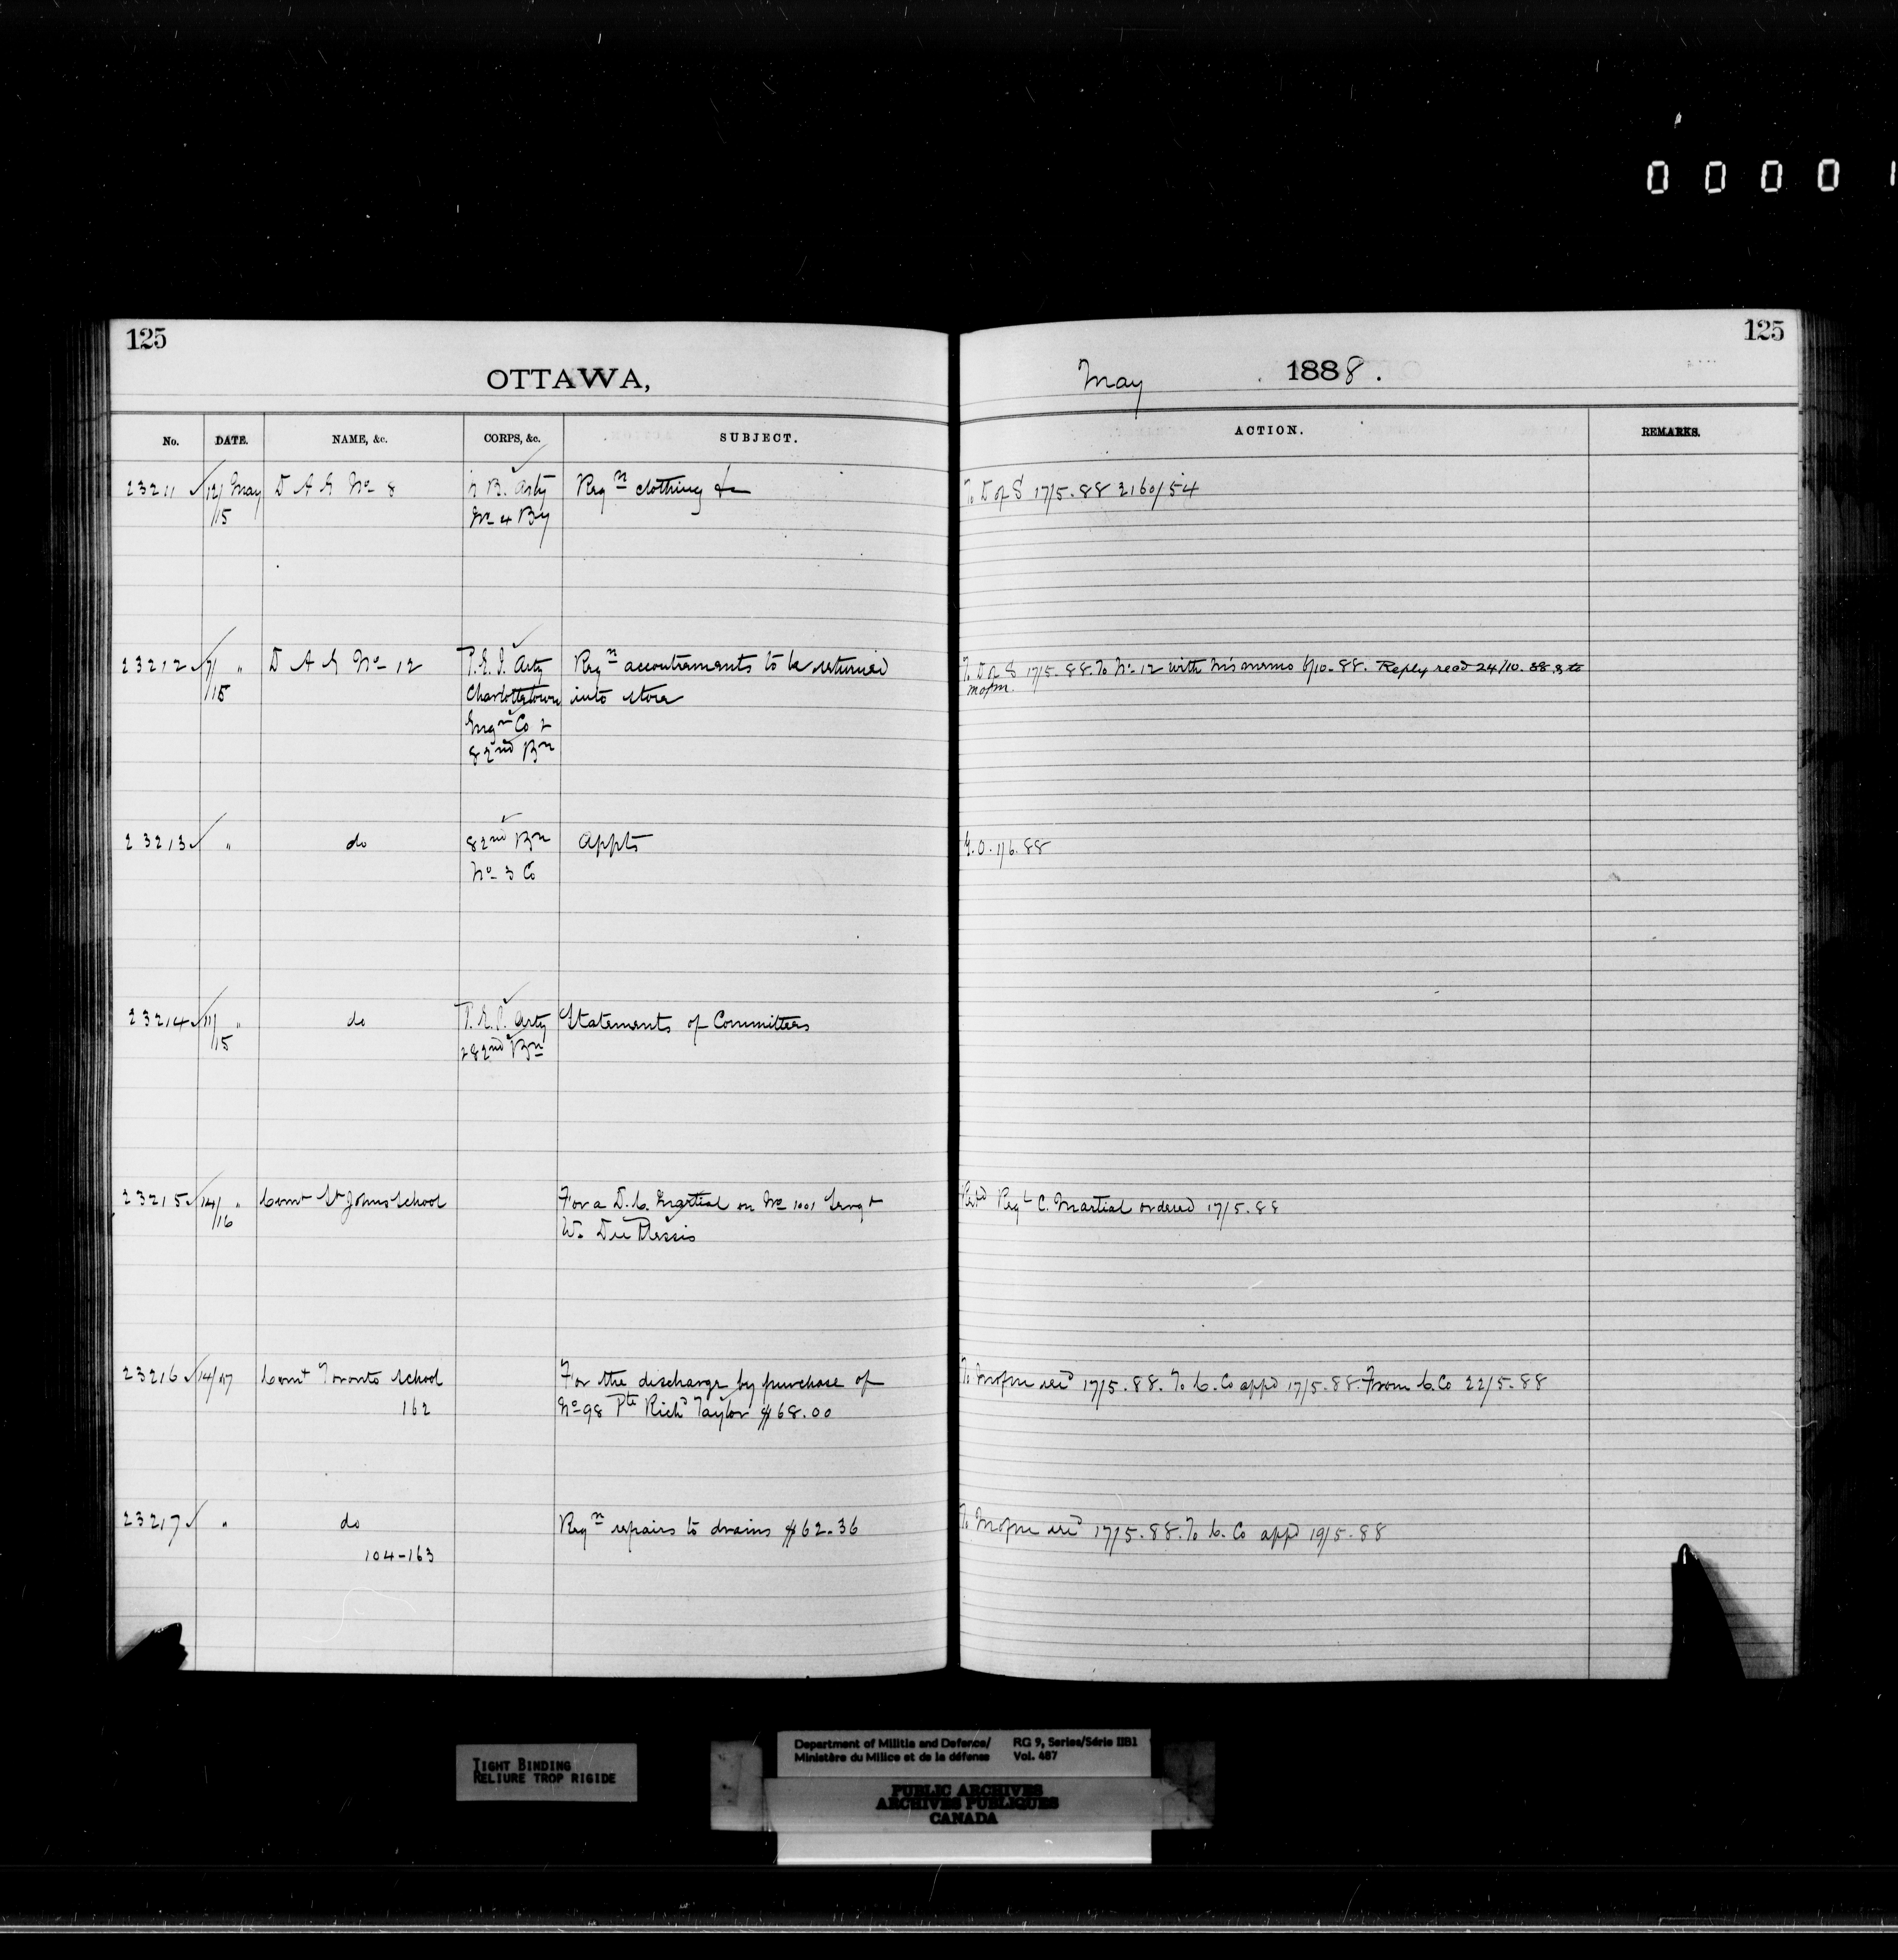 0 0 0 0 1
125
125
OTTAWA,
May 1888.
No. DATE. NAME, &c. CORPS, &c. SUBJECT. ACTION. REMARKS.
23211 12/ May D A G No 8 N B. Arty Reqn clothing &c To D of S 17/5.88 2160/54
/15 No 4 By
23212 7/ " D A G No 12 P.E.I. Arty Reqn accoutrements to be returned To D of S 17/5.88. To No 12 with his memo 6/10.88. Reply recd 24/10.88. & to
/15 Charlottetown into store mofm.
Engn Co &
82nd Bn
23213 " do 82nd Bn Appts G.O. 1/6.88
No 3 Co
23214 11/ " do P.E.I. Arty Statements of Committees
/15 & 82nd Bn
23215 14/ " Comt St Johns School For a D.C. Martial on No 1001 Sergt Regl C. Martial ordered 17/5.88
/16 W. Du Plessis
23216 14/17 Comt Toronto School For the discharge by purchase of To mofm recd 17/5.88. To C. Co appd 17/5.88. From C. Co 22/5.88
162 No 98 Pte Richd Taylor $68.00
23217 " do Reqn repairs to drains $62.36 To mofm recd 17/5.88. To C. Co appd 19/5.88
104-163
TIGHT BINDING
RELIURE TROP RIGIDE
Department of Militia and Defence/ RG 9, Series/Série IIB1
Ministère du Milice et de la défense Vol. 487
PUBLIC ARCHIVES
ARCHIVES PUBLIQUES
CANADA